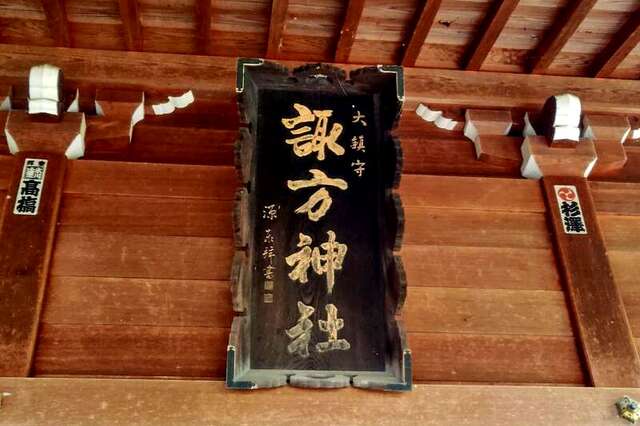 大鎮守
諏方神社
源泰祥書
高橋
杉澤